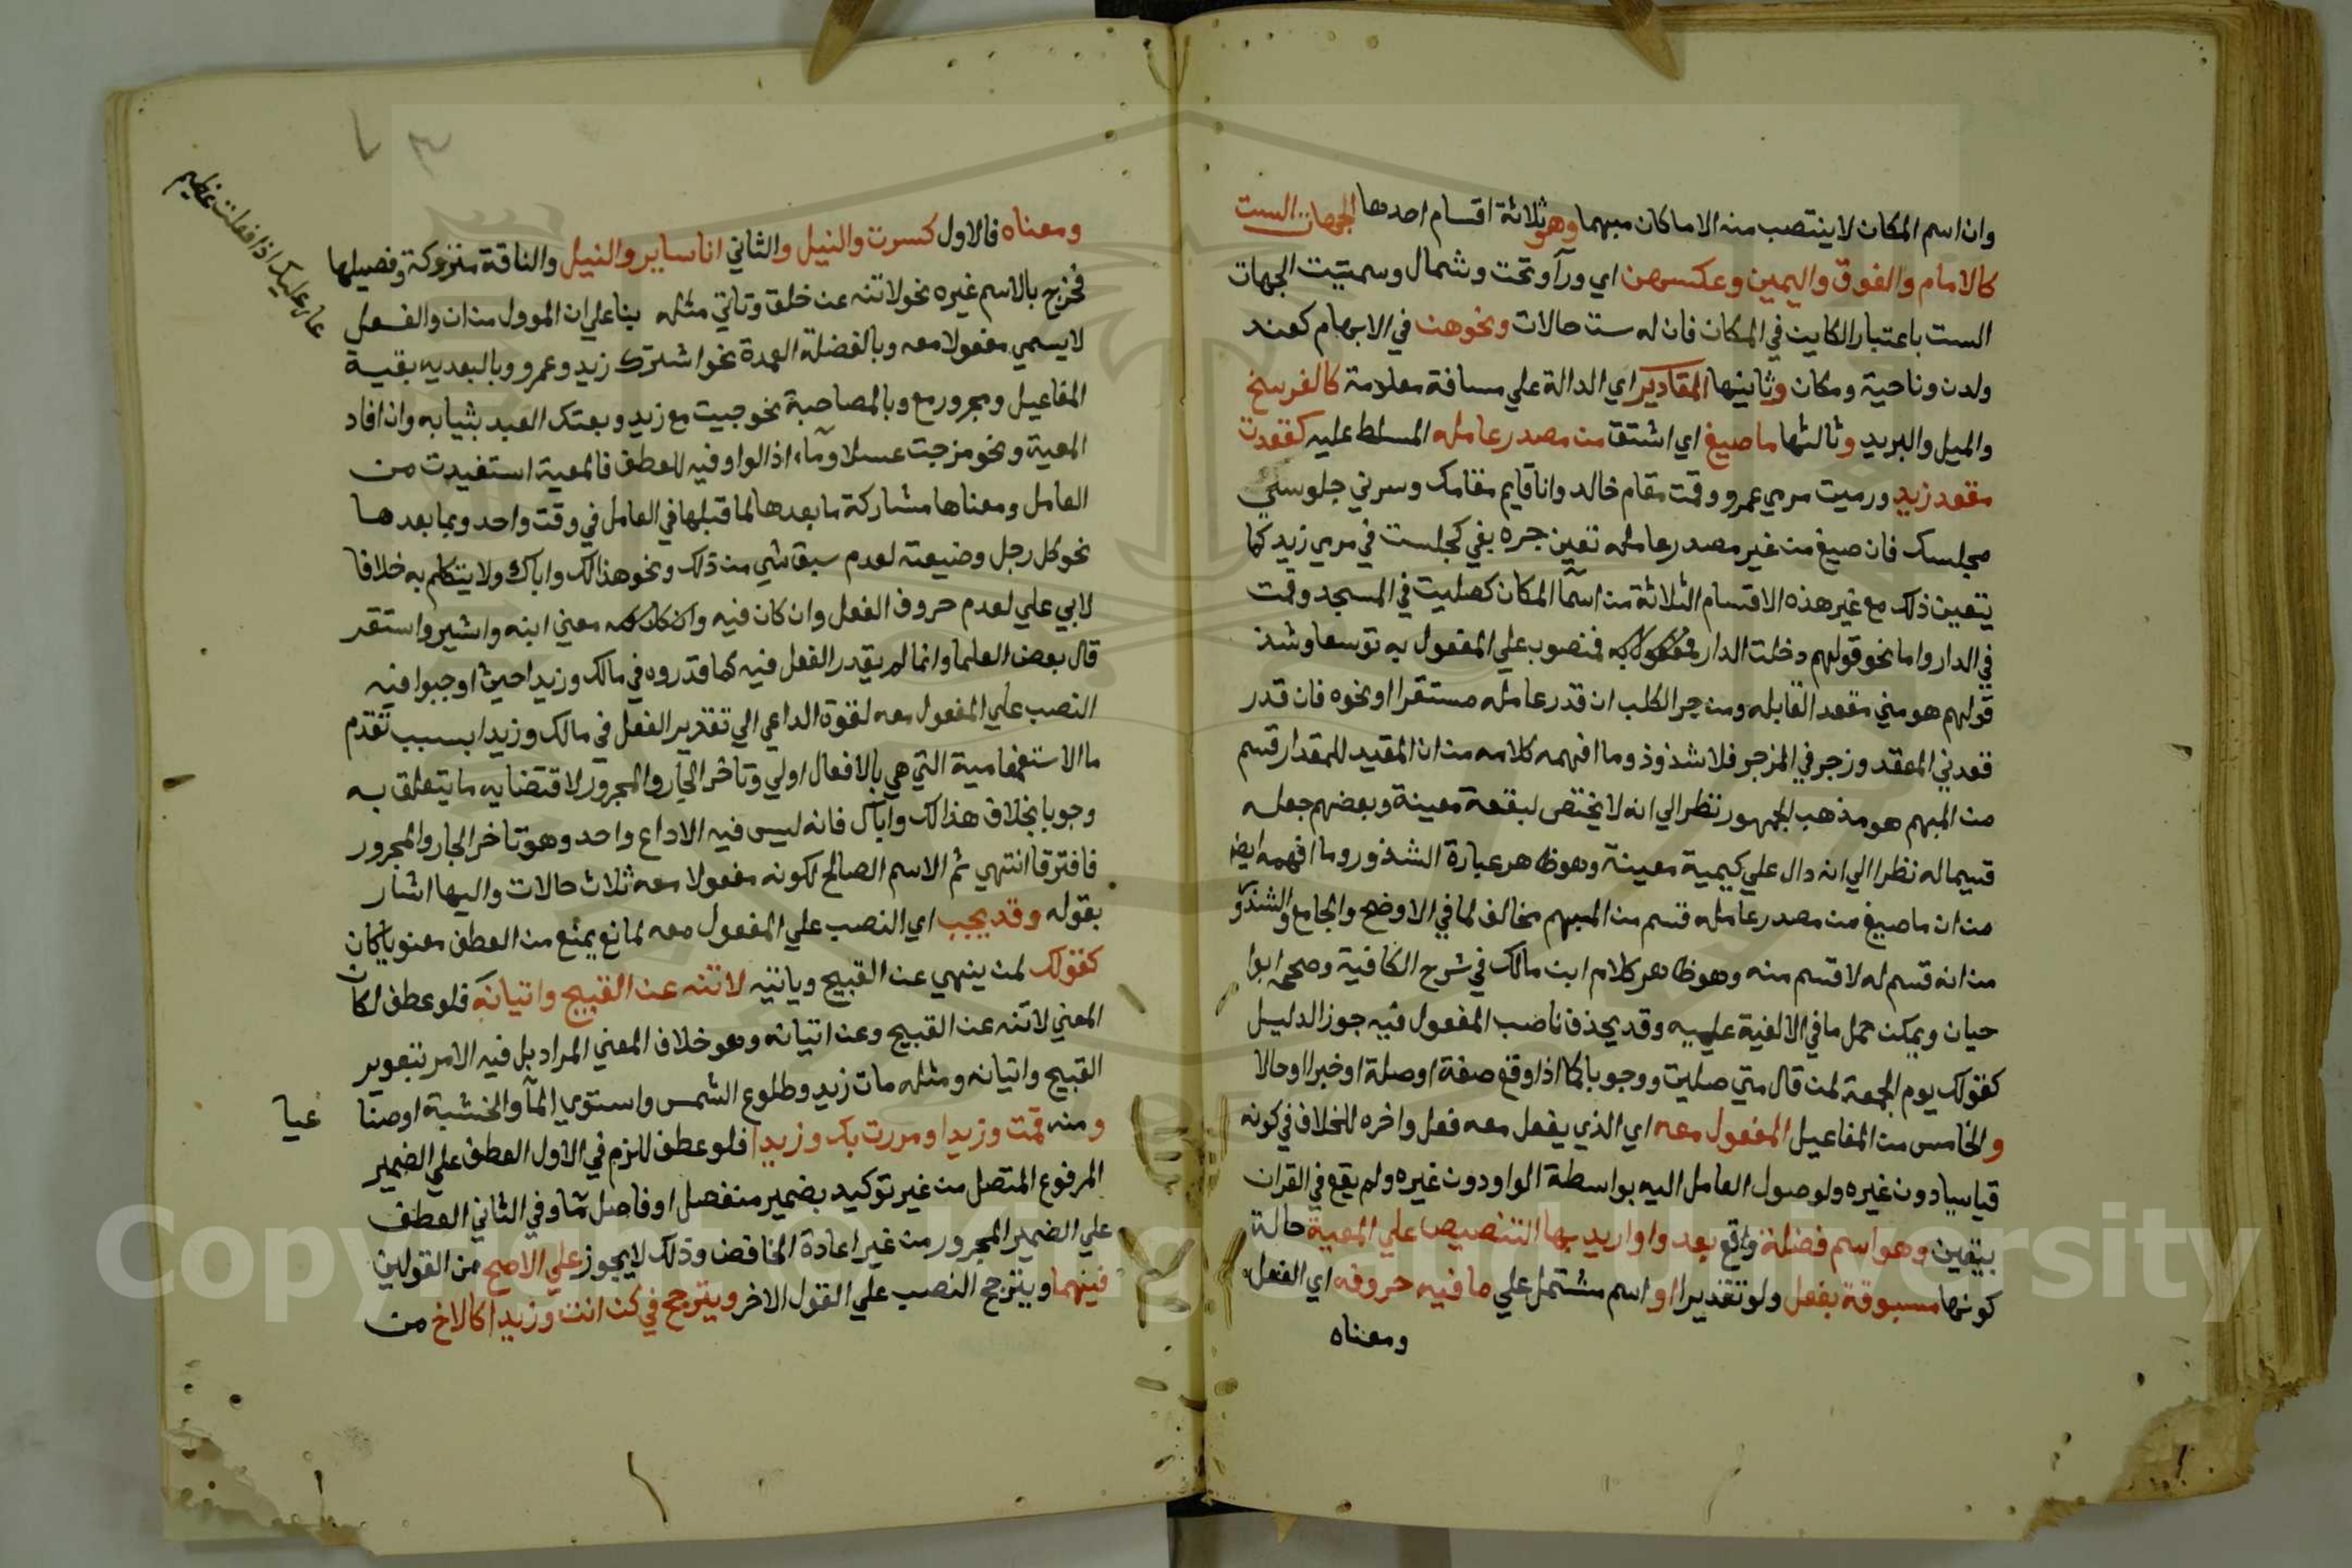 وان اسم المكان لا ينتصب منه الا ما كان مبهما وهو ثلاثة اقسام احدها الجهات الست
كالامام والفوق واليمين وعكسهن اي ورآ وتحت وشمال وسميت الجهات
الست باعتبار الكاين في المكان فان له ست حالات ونحوهن في الابهام كعند
ولدن وناحية ومكان وثانيها المقادير اي الدالة علي مسافة معلومة كالفرسخ
والميل والبريد وثالثها ما صيغ اي اشتق من مصدر عامله المسلط عليه كقعدت
مقعد زيد ورميت مرمي عمرو وقمت مقام خالد وانا قايم مقامك وسرني جلوسي
مجلسك فان صيغ من غير مصدر عامله تعين جره بفي كجلست في مرمي زيد كما
يتعين ذلك مع غير هذه الاقسام الثلاثة من اسمآ المكان كصليت في المسجد وقمت
في الدار واما نحو قولهم دخلت الدار فمنصوب علي المفعول به توسعا وشذ
قولهم هو مني مقعد القابله ومزجر الكلب ان قدر عامله مستقرا او نحوه فان قدر
قعد في المقعد وزجر في المزجر فلا شذوذ وما افهمه كلامه من ان المقيد للمقدار قسم
من المبهم هو مذهب الجمهور نظر الي انه لا يختص لبقعة معينة وبعضهم جعله
قسيما له نظرا الي انه دال علي كيمية معينة وهو ظاهر عبارة الشذور وما افهمه ايض
من ان ما صيغ من مصدر عامله قسم من المبهم مخالف لما في الاوضح والجامع والشذور
من انه قسم له لا قسم منه وهو ظاهر كلام ابن مالك في شرح الكافية وصححه ابوا
حيان ويمكن حمل ما في الالفية عليه وقد يحذف ناصب المفعول فيه جوز الدليل
كقولك يوم الجمعة لمن قال متي صليت ووجوبا كما اذا وقع صفة او صلة او خبرا او حالا
والخامس من المفاعيل المفعول معه اي الذي يفعل معه فعل واخره للخلاف في كونه
قياسيا دون غيره ولوصول العامل اليه بواسطة الواو دون غيره ولم يقع في القران
بيقين وهو اسم فضلة واقع بعد واو اريد بها التنصيص علي المعية حالة
كونها مسبوقة بفعل ولو تقديرا او اسم مشتمل علي ما فيه حروفه اي الفعل
ومعناه
ومعناه فالاول كسرت والنيل والثاني انا ساير والنيل والناقة متروكة وفصيلها
فخرج بالاسم غيره نحو لا تنه عن خلق وتاتي مثله بنا علي ان الموول من ان والفعل
لا يسمي مفعولا معه وبالفضلة العمدة نحو اشترك زيد وعمرو وبالبعديه بقية
المفاعيل ومجرور مع وبالمصاحبة نحو جيت مع زيد وبعتك العبد بثيابه وان افاد
المعية ونحو مزجت عسلا ومآء اذ الواو فيه للعطف فالمعية استفيدت من
العامل ومعناها مشاركة ما بعدها لما قبلها في العامل في وقت واحد وبما بعدها
نحو كل رجل وضيعته لعدم سبق شي من ذلك ونحو هذا لك واباك ولا يتكلم به خلافا
لابي علي لعدم حروف الفعل وان كان فيه معني ابنه واشير واستقر
قال بعض العلما وانما لم يقدر الفعل فيه كما قدروه في مالك وزيدا حيث اوجبوا فيه
النصب علي المفعول معه لقوة الداعي الي تقدير الفعل في مالك وزيدا بسبب تقدم
ما الاستفهامية التي هي بالافعال اولي وتاخر الجار والمجرور لاقتضايه ما يتعلق به
وجوبا بخلاف هذا لك واباك فانه ليس فيه الا داع واحد وهو تاخر الجار والمجرور
فافترقا انتهي ثم الاسم الصالح لكونه مفعولا معه ثلاث حالات واليها اشار
بقوله وقد يجب اي النصب علي المفعول معه لمانع يمنع من العطف معنويا كان
كقولك لمن ينهي عن القبيح وياتيه لا تنه عن القبيح واتيانه فلو عطف لكان
المعني لا تنه عن القبيح وعن اتيانه وهو خلاف المعني المراد بل فيه الامر بتعوير
القبيح واتيانه ومثله مات زيد وطلوع الشمس واستوي المآ والخشبة او صناعيا
ومنه قمت وزيدا ومررت بك وزيدا فلو عطف للزم في الاول العطف علي الضمير
المرفوع المتصل من غير توكيد بضمير منفصل او فاصل ما وفي الثاني العطف
علي الضمير المجرور من غير اعادة الخافض وذلك لا يجوز علي الاصح من القولين
فيهما ويترجح النصب علي القول الاخر ويترجح في كن انت وزيدا كالاخ من
عار عليك اذا فعلت عظيم
Copyright © King Saud University